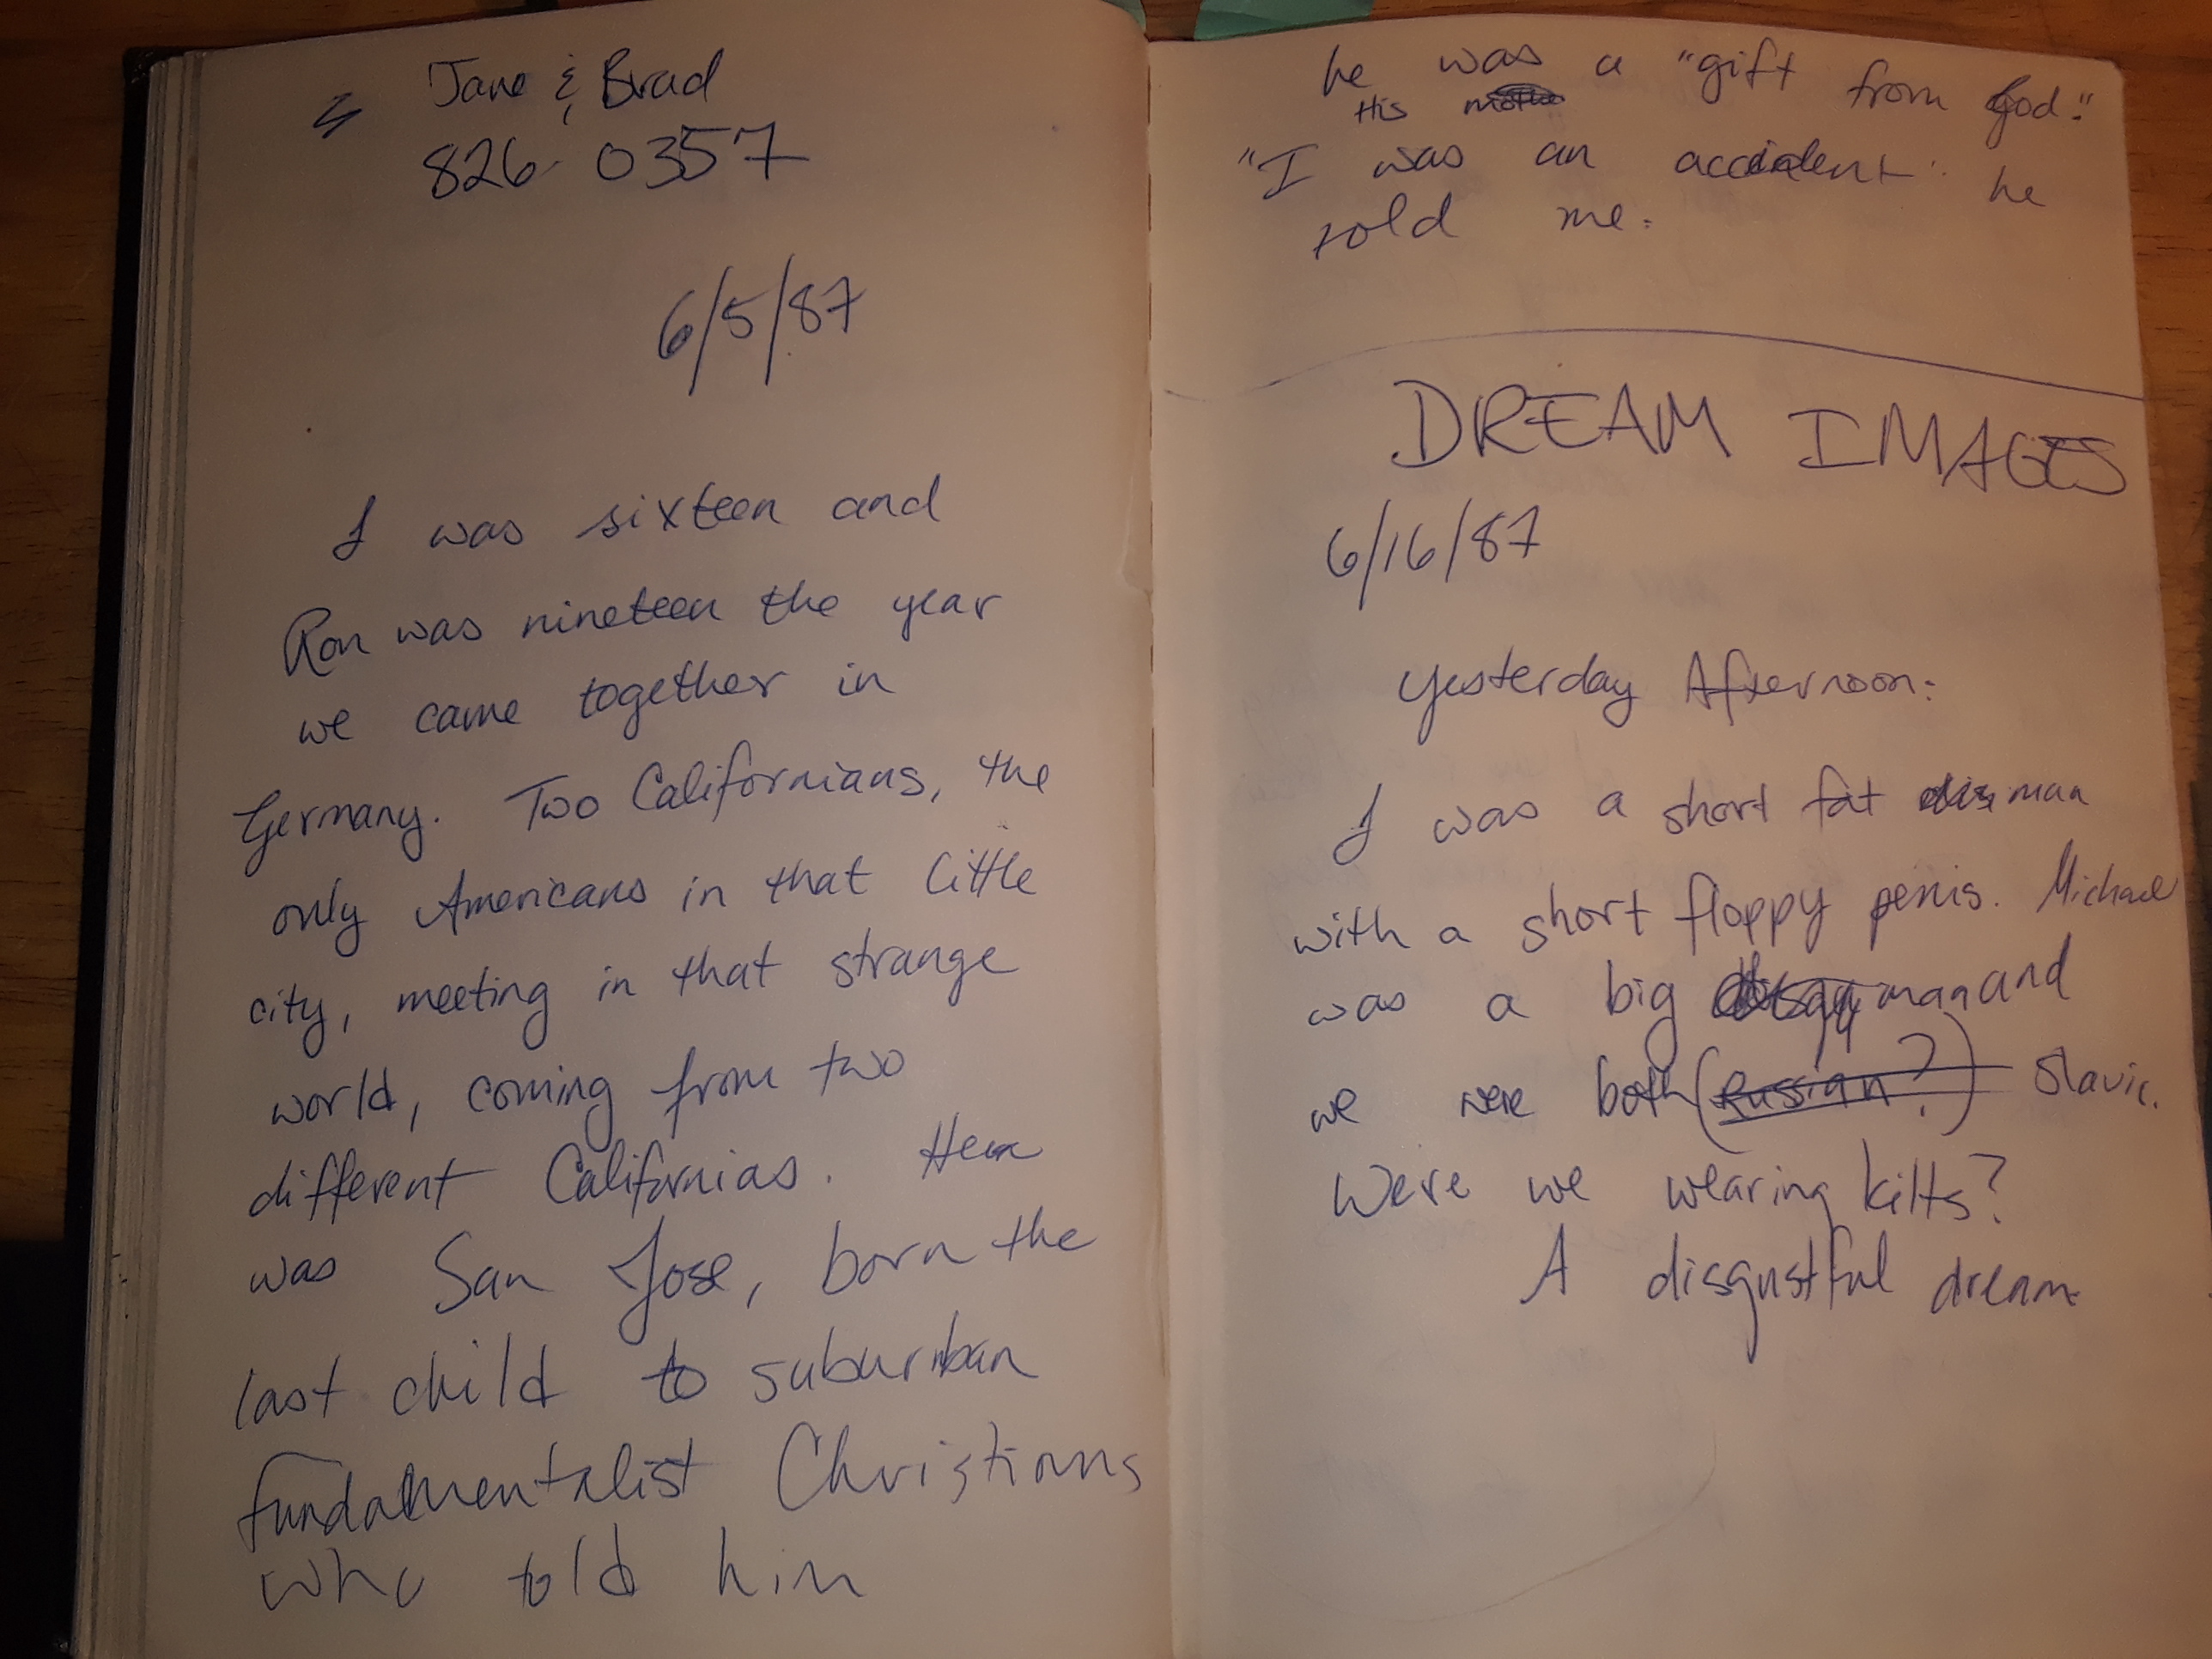 Jane & Brad
826-0357
6/5/87
I was sixteen and
Ron was nineteen the year
we came together in
Germany. Two Californians, the
only Americans in that little
city, meeting in that strange
world, coming from two
different Californias.
was San Jose, born the
last child to suburban
fundamentalist Christians
who told him
he was a "gift from God."
His
"I was an accident" he
told me.
DREAM IMAGES
6/16/87
Yesterday Afternoon:
I was a short fat man
with a short floppy penis. Michael
was a big man and
we were both (Russian?) Slavic.
Were we wearing kilts?
A disgustful dream